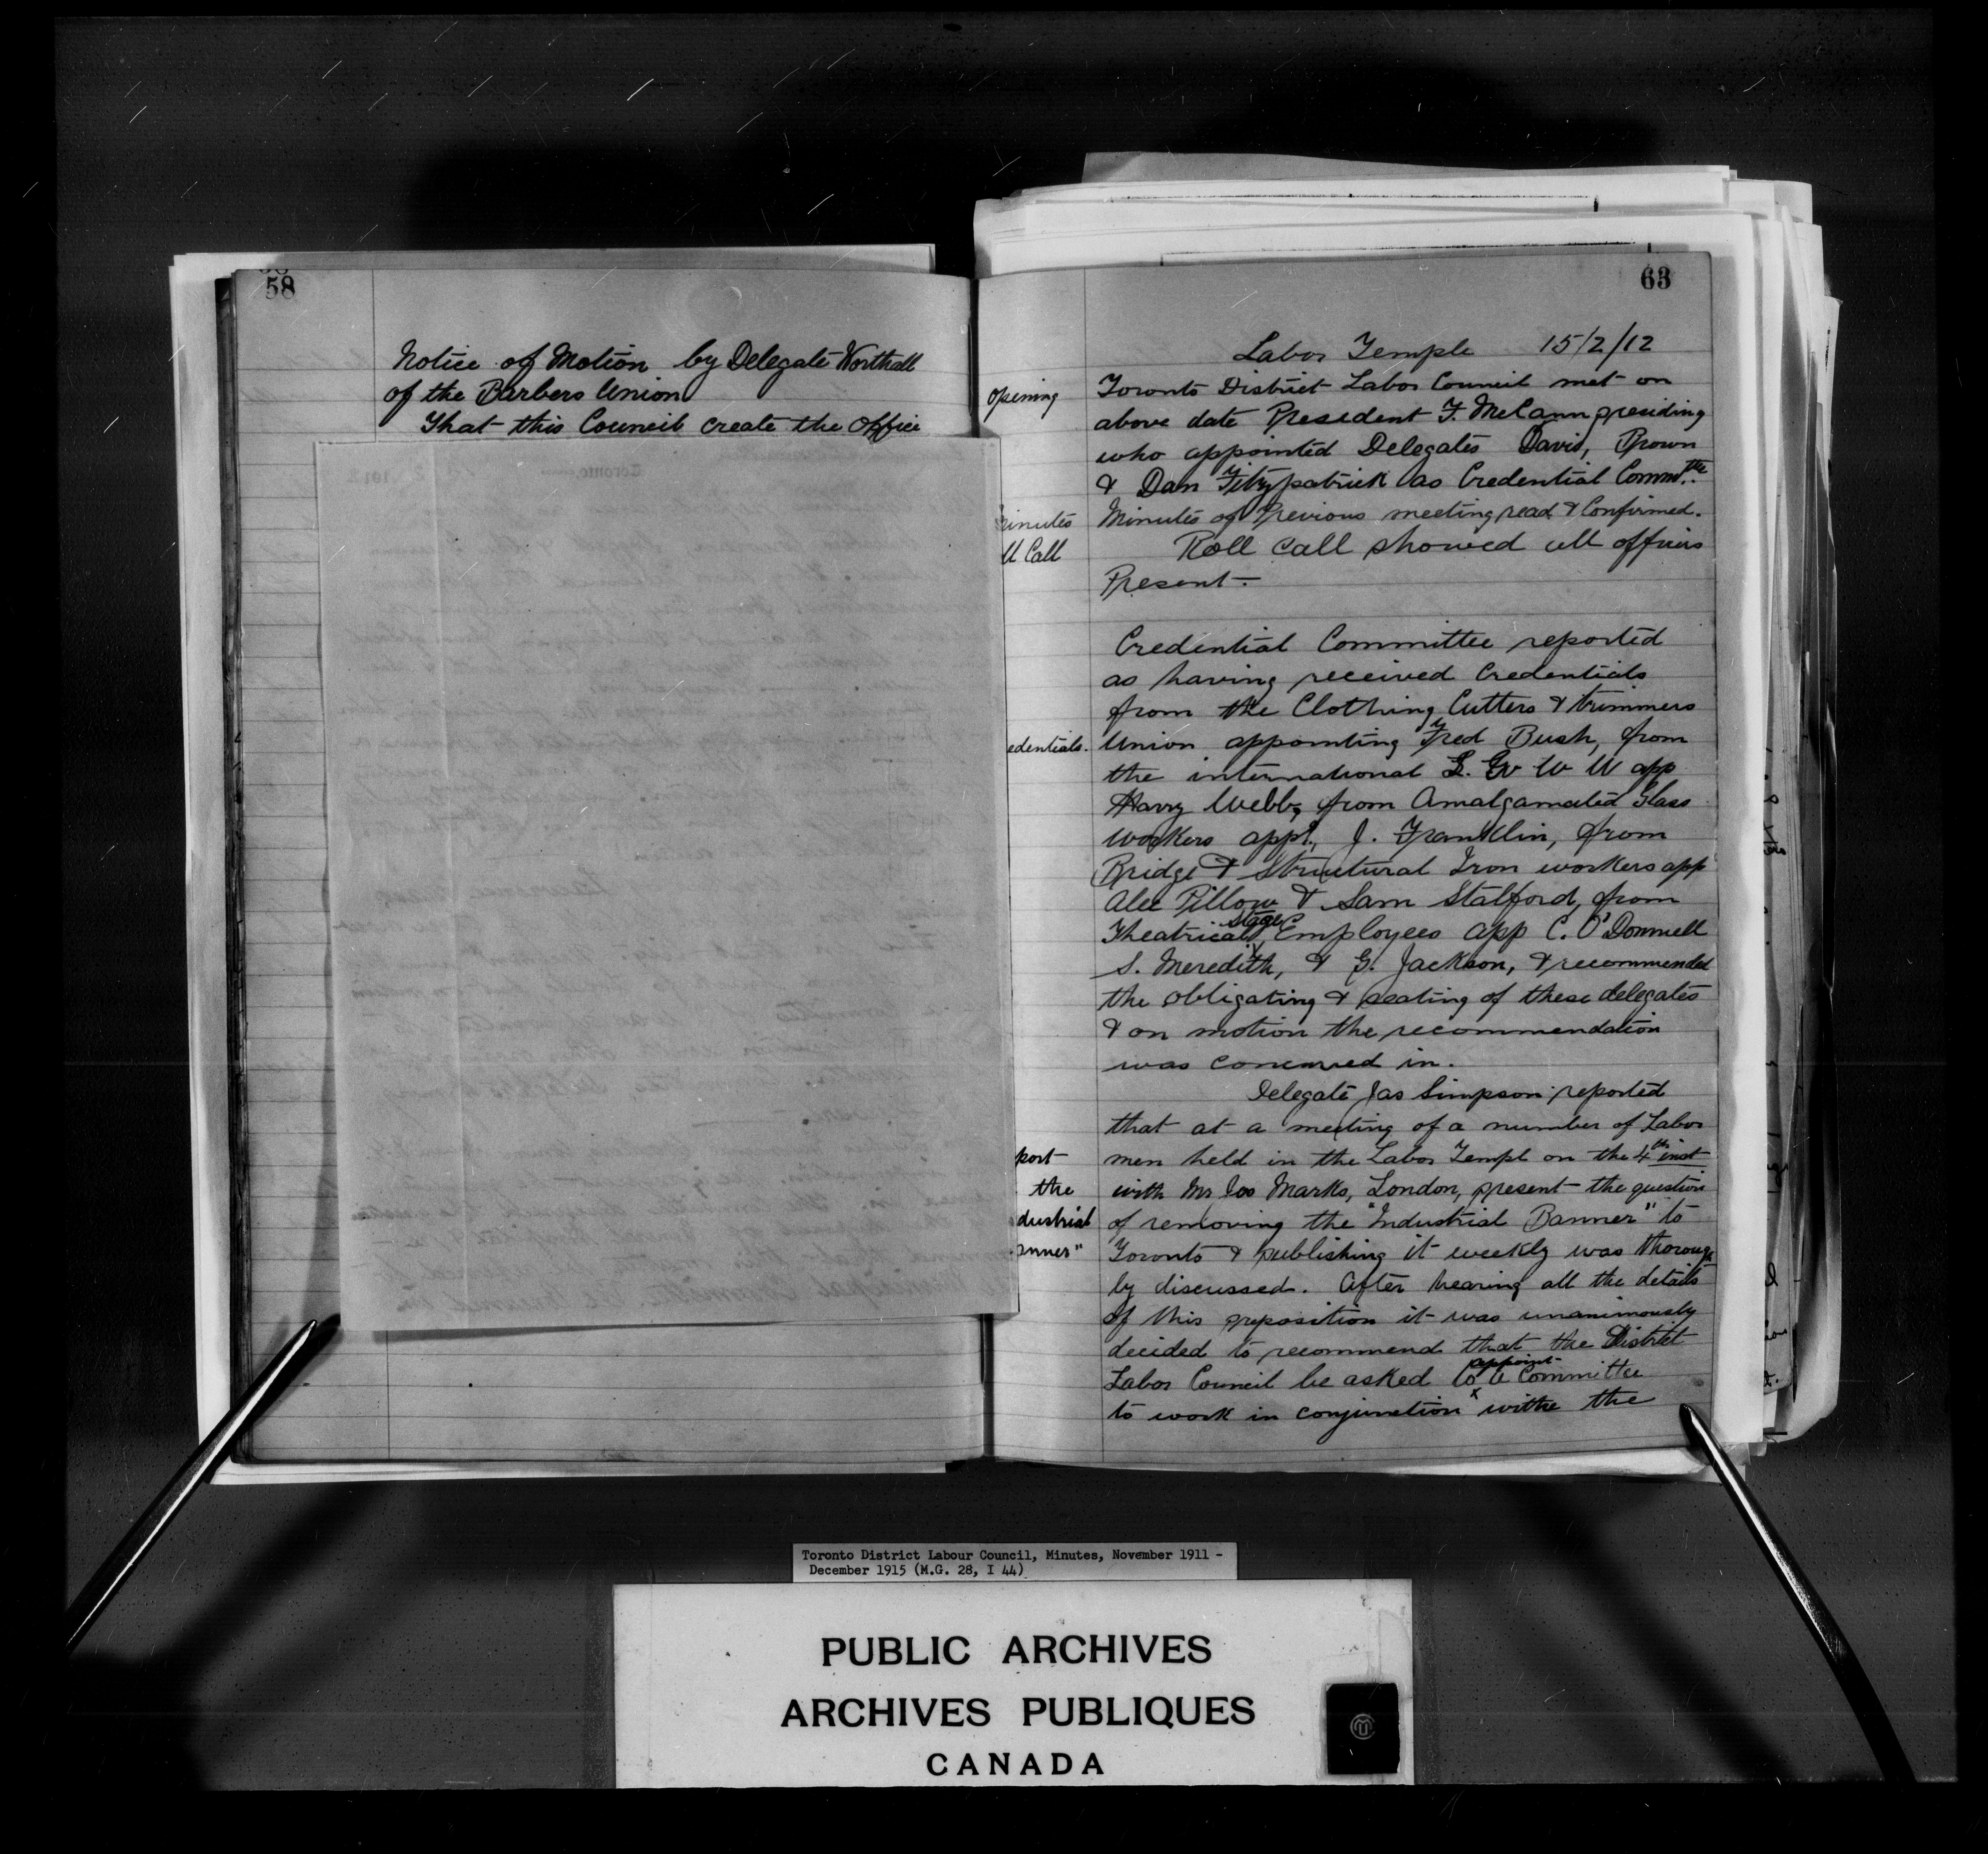 58
Notice of Motion by Delegate Worthall
of the Barbers Union
That this Council create the office
63
Labor Temple 15/2/12
opening
Toronto District Labor Council met on
above date President F. McCann presiding
who appointed Delegates Davis, Brown
& Dan Fitzpatrick as Credential Committe.
inutes
Minutes of Previous meeting read & Confirmed.
ll Call
Roll call showed all officers
Present.
Credential Committee reported
as having received Credentials
from the Clothing Cutters & trimmers
edentials.
Union appointing Fred Bush, from
the international L. G W U app
Harry Webb, from Amalgamated Glass
workers app., J. Franklin, from
Bridge & Structural Iron workers app
Alec Pillow & Sam Stalford, from
Theatrical Stage Employees app C. O'Donnell
S. Meredith, & G. Jackson, & recommended
the obligating & seating of these delegates
& on motion the recommendation
was concurred in.
Delegate Jas Simpson reported
that at a meeting of a number of Labor
port
men held in the Labor Templ on the 4th inst
the
with Mr Jos Marks, London, present the question
dustrial
of removing the "Industrial Banner" to
nner"
Toronto & publishing it weekly was thorough
ly discussed. After hearing all the details
of this proposition it was unanimously
decided to recommend that the District
Labor Council be asked to appoint a Committee
to work in conjunction withe the
Toronto District Labour Council, Minutes, November 1911 -
December 1915 (M.G. 28, I 44)
PUBLIC ARCHIVES
ARCHIVES PUBLIQUES
CANADA